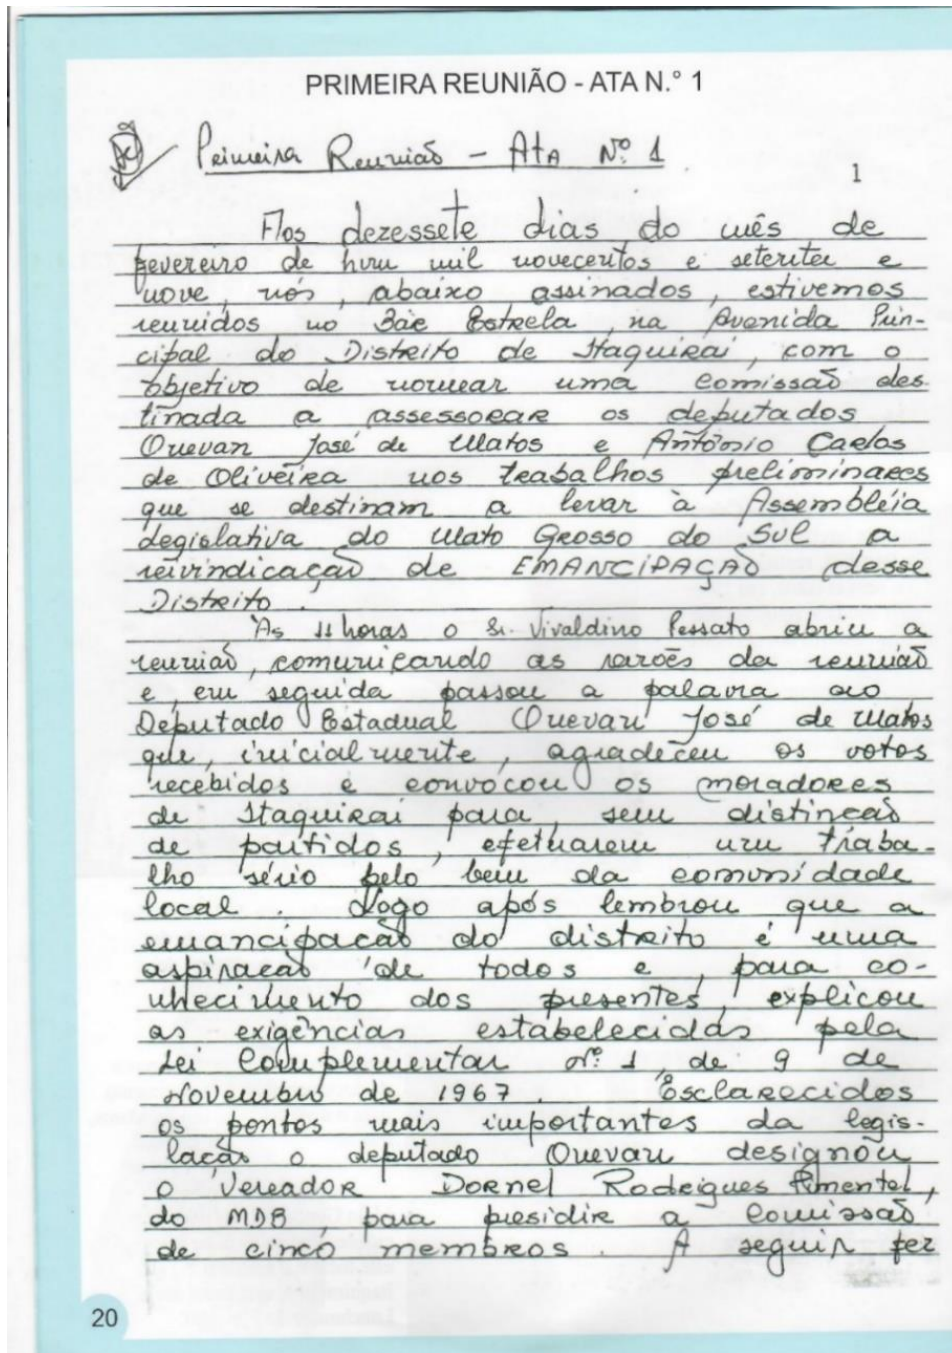 PRIMEIRA REUNIÃO - ATA N.° 1
Primeira Reunião - Ata Nº 1
1
Aos dezessete dias do mês de
fevereiro de hum mil novecentos e setenta e
nove, nós, abaixo assinados, estivemos
reunidos no Bar Estrela, na Avenida Prin-
cipal do Distrito de Itaquirai, com o
objetivo de nomear uma comissão des-
tinada a assessorar os deputados
Onevan José de Matos e Antônio Carlos
de Oliveira nos trabalhos preliminares
que se destinam a levar à Assembléia
Legislativa do Mato Grosso do Sul a
reivindicação de EMANCIPAÇÃO desse
Distrito.
As 11 horas o Sr. Vivaldino Pessato abriu a
reunião, comunicando as razões da reunião
e, em seguida passou a palavra ao
Deputado Estadual Onevan José de Matos
que, inicialmente, agradeceu os votos
recebidos e convocou os moradores
de Itaquirai para, sem distinção
de partidos, efetuarem um traba-
lho sério pelo bem da comunidade
local. Logo após lembrou que a
emancipação do distrito é uma
aspiração de todos e, para co-
nhecimento dos presentes, explicou
as exigências estabelecidas pela
Lei Complementar nº 1, de 9 de
Novembro de 1967. Esclarecidos
os pontos mais importantes da legis-
lação o deputado Onevan designou
o Vereador Dornel Rodrigues Pimentel,
do MDB, para presidir a Comissão
de cinco membros. A seguir fez
20